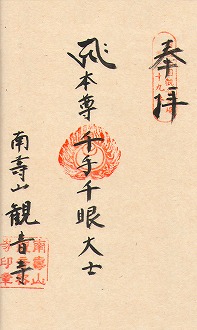 奉拝
本尊 千手千眼大士
南寿山 観音寺